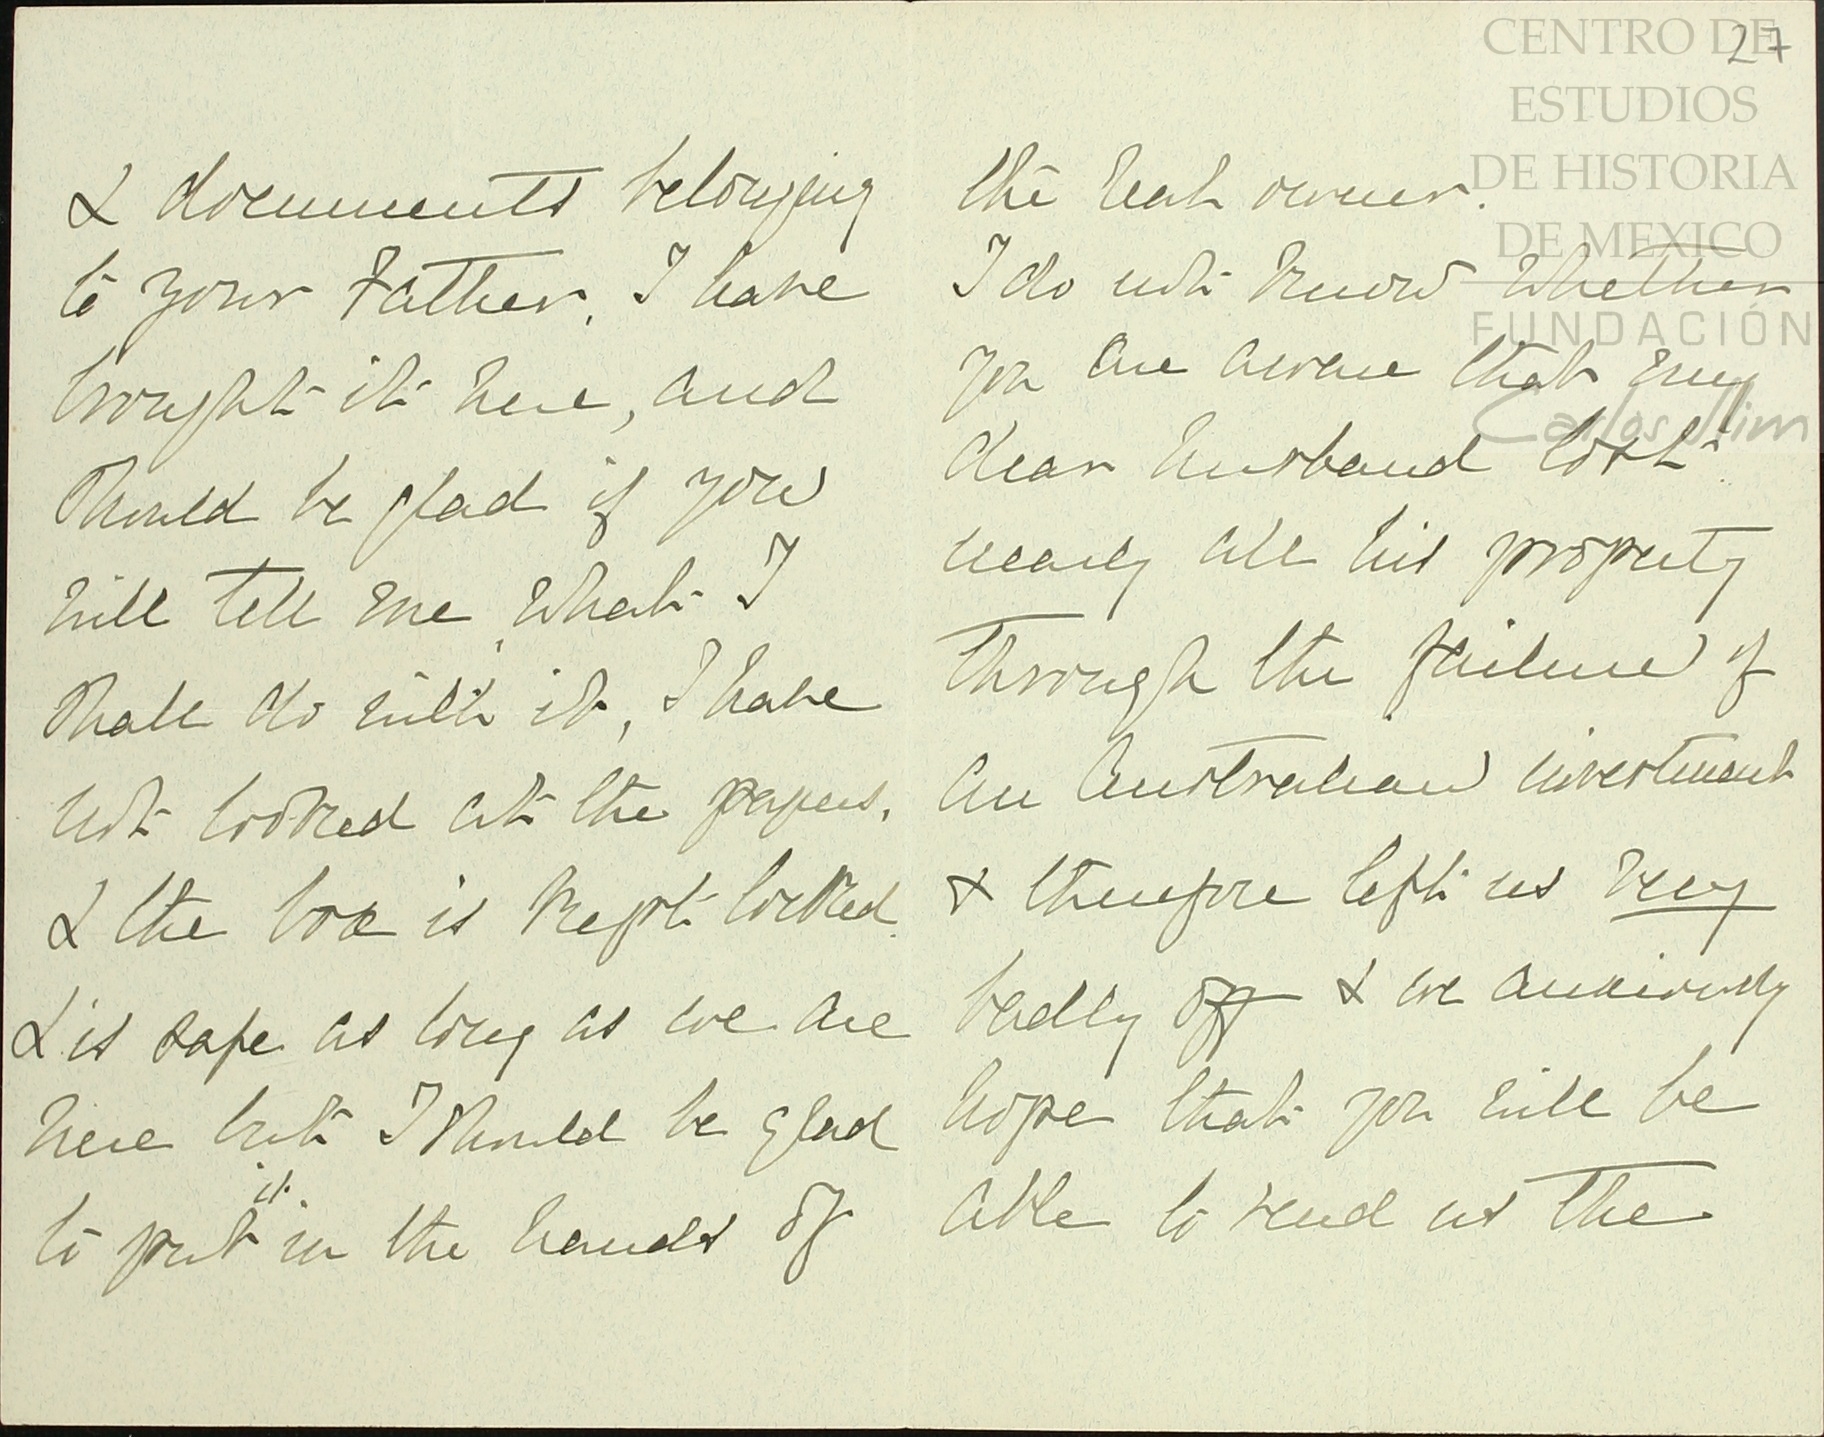 & documents belonging
to your Father, I have
brought it here, and
should be glad if you
will tell me what I
shall do with it, I have
not looked at the papers,
& the box is kept locked
& is safe as long as we are
here but I should be glad
to put it in the hands of
27
the real owner.
I do not know whether
you are aware that my
dear husband lost
nearly all his property
through the failure of
an Australian investment
& therefore left us very
badly off & we anxiously
hope that you will be
able to send us the
CENTRO DE
ESTUDIOS
DE HISTORIA
DE MEXICO
FUNDACIÓN
Carlos Slim